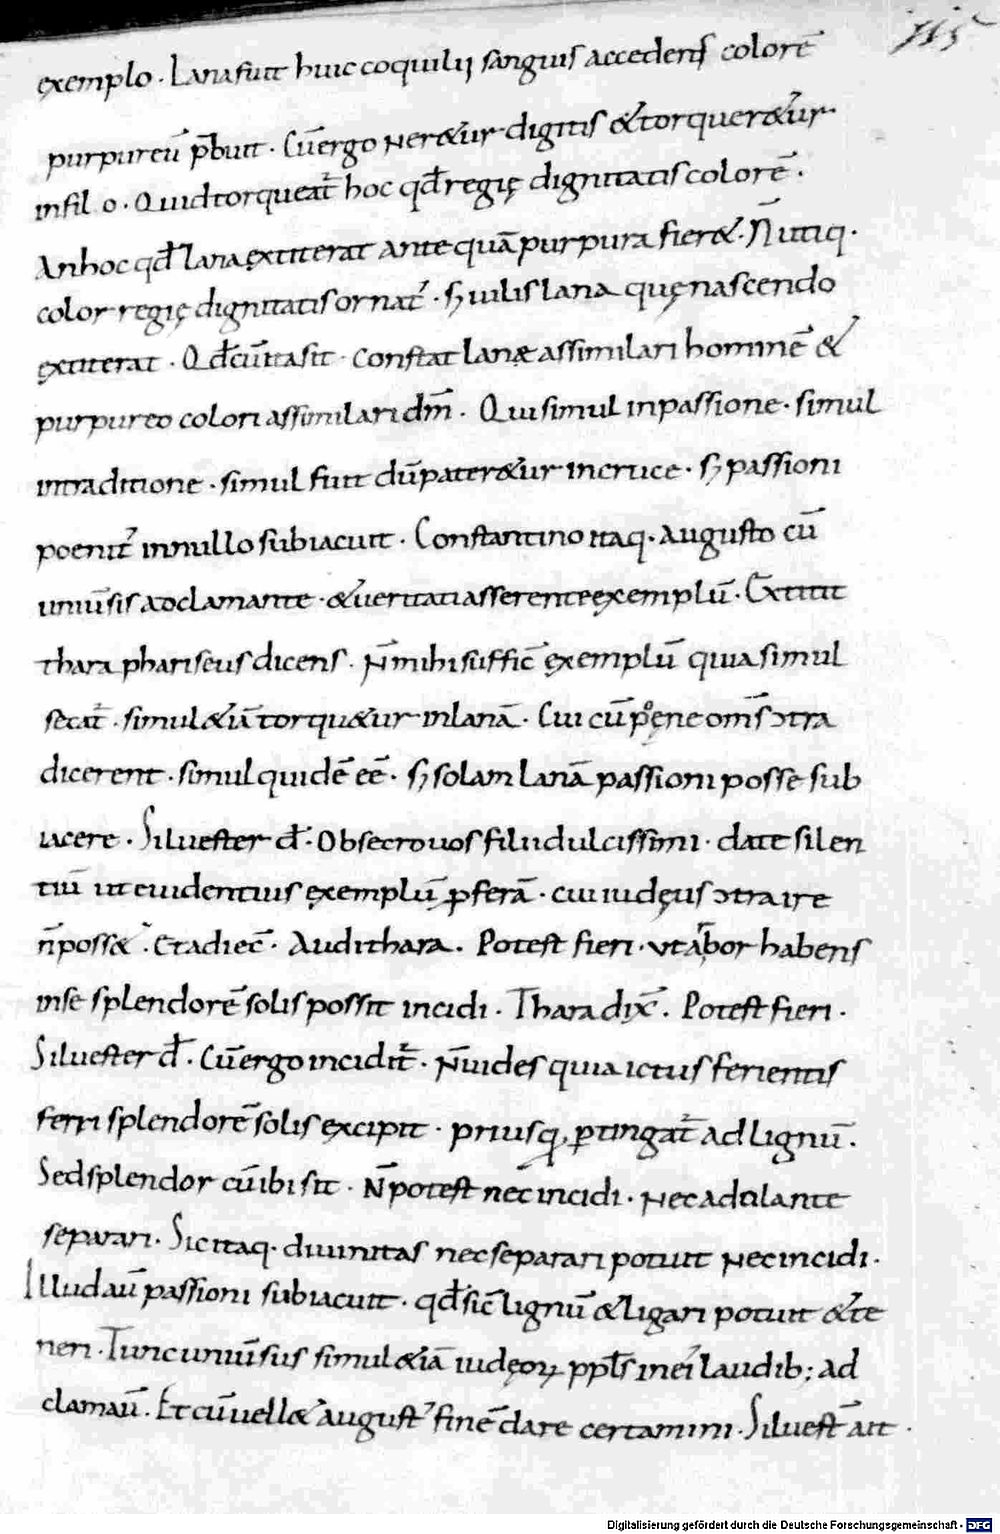 115
exemplo · Lana fuit huic coquilij sanguis accedens colorē
purpureū p̄buit · Cū ergo ner&ur digitis & torquer&ur ·
in filo · Quid torqueat̄ hoc qđ regię dignitatis colorē ·
An hoc qđ lana extiterat ante quā purpura fier& · N̄ utiq ·
color regię dignitatis ornat̄ · s; uilis lana quę nascendo
extiterat · Qđ cū ita sit · constat lanæ assimilari hominē &
purpureo colori assimilari dm̄ · Qui simul in passione · simul
in traditione · simul fuit dū pater&ur in cruce · s; passioni
poenit̄ in nullo subiacuit · Constantino itaq · augusto cū
uniū sis adclamante · & ueritati asserente exemplū · Extitit
thara phariseus dicens · N̄ mihi suffic̄ exemplū quia simul
secat̄ · simul &iā torqu&ur in lanā · Cui cū pene om̄s ɔtra
dicerent · simul quidē eē · s; solam lanā passioni posse sub
iacere · Siluester đ · Obsecro uos filii dulcissimi · date silen
tiū ut euidentius exemplū p̱ferā · cui iudęus ɔtra ire
n̄ poss& · Et adiec̄ · Audi thara · Potest fieri · vt arbor habens
in se splendorē solis possit incidi · Thara dix̄ · Potest fieri ·
Siluester đ · Cū ergo incidit̄ · N̄ uides quia ictus ferientis
ferri splendorē solis excipit · priusq̄ p̱tingat̄ ad lignū ·
Sed splendor cū ibi sit · N̄ potest nec incidi · Nec ad alante
separari · Sic itaq · diuinitas nec separari potuit Nec incidi ·
Illud aū passioni subiacuit · qđ sic̄ lignū & ligari potuit & te
neri · Tunc uniū sus simul &iā iudęoꝝ pplī s in ei laudib; ad
clamaū · Et cū uell& august̄ finē dare certamini · Siluest̄ ait ·
Digitalisierung gefördert durch die Deutsche Forschungsgemeinschaft · DFG